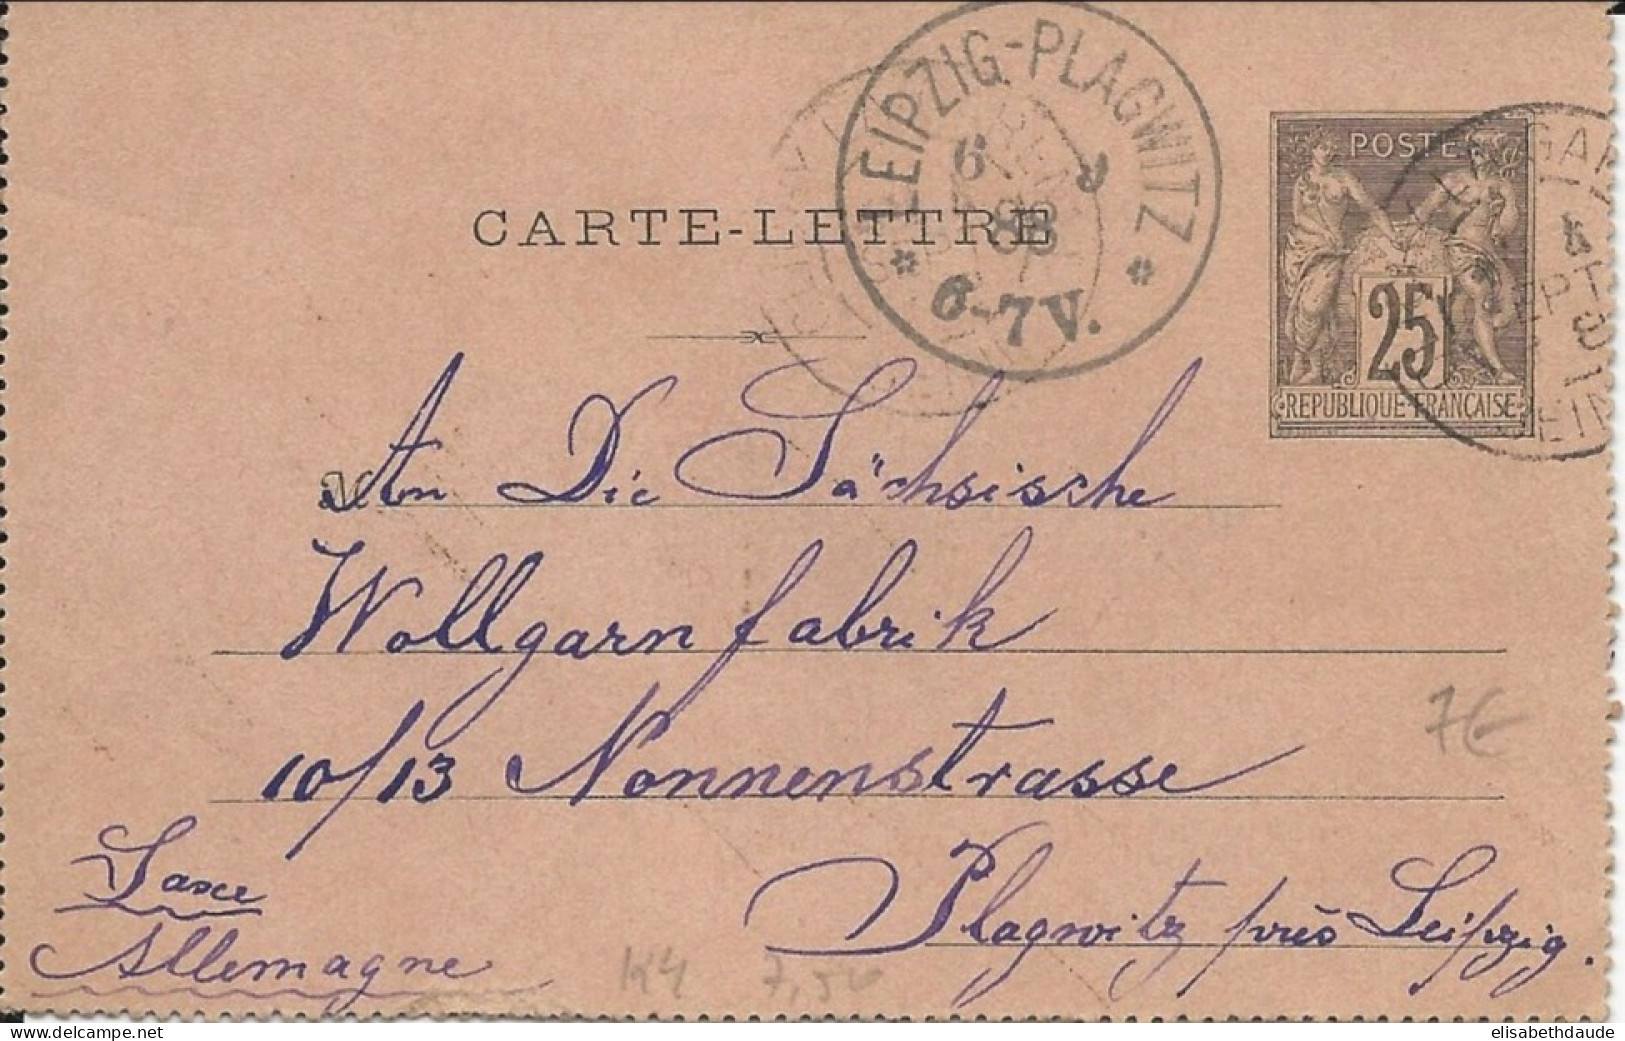 LEIPZIG-PLAGWITZ
6 9
88
6-7 V.
POSTE
25
REPUBLIQUE FRANÇAISE
CARTE-LETTRE
An Die Sächsische
Wollgarnfabrik
10/13 Nonnenstrasse
Plagwitz près Leipzig.
Saxe
Allemagne
7€
K4 7,50
elisabethdaude